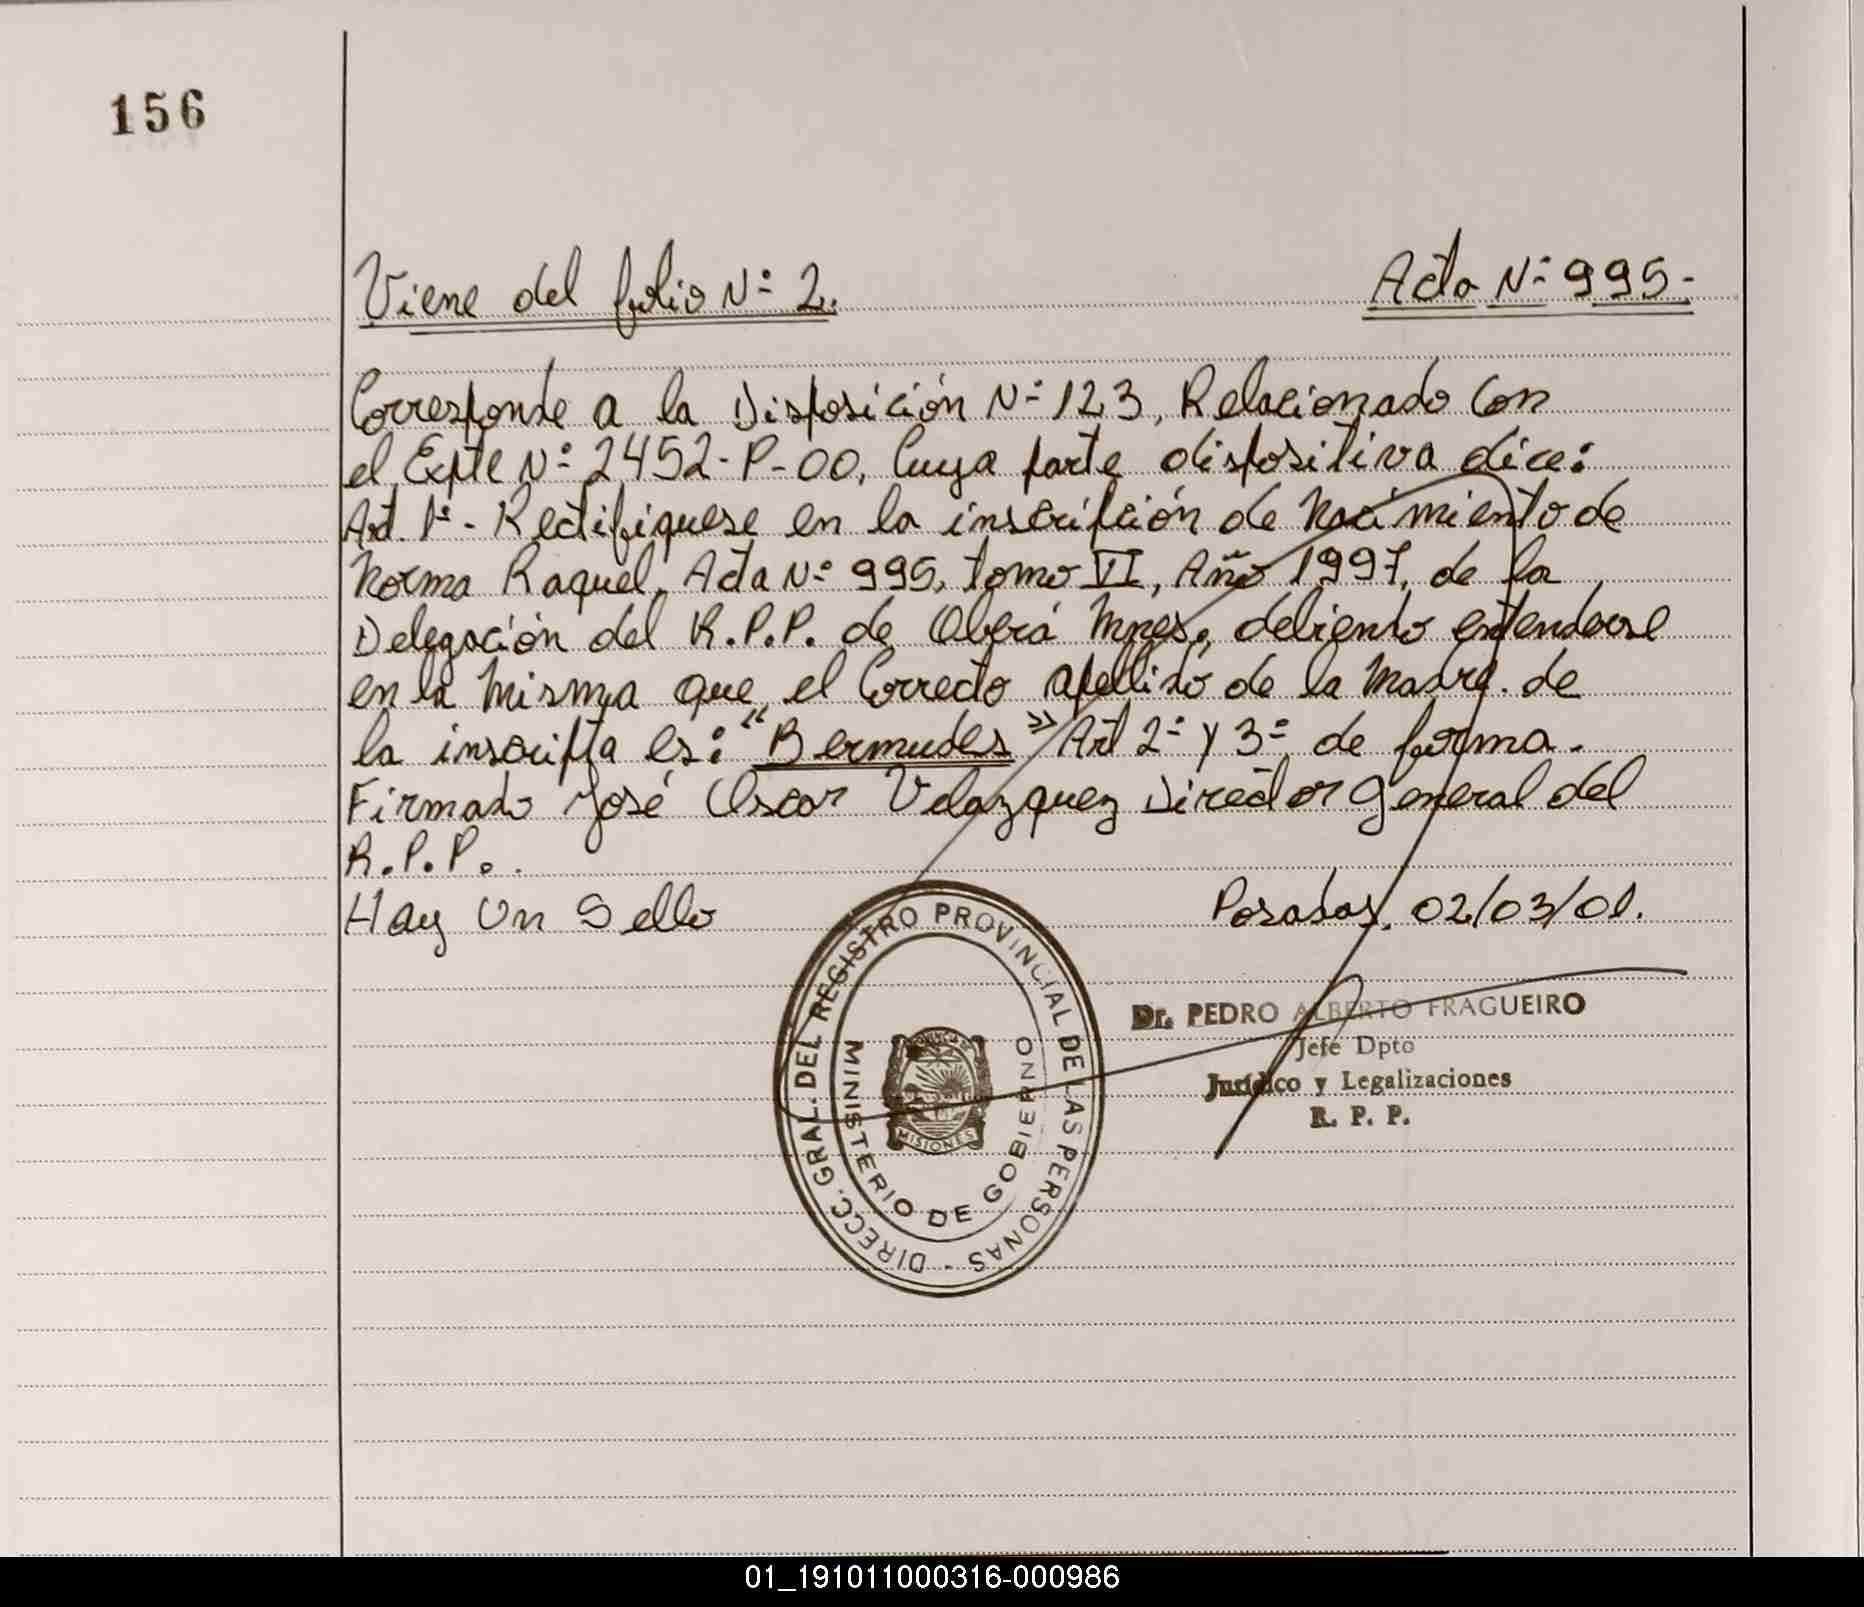 156
Viene del folio Nº 2.
Acta Nº 995.-
Corresponde a la Disposición Nº 123, Relacionado Con
el Expte Nº 2452-P-00, Cuya parte dispositiva dice:
Art. 1º - Rectifiquese en la inscripción de Nacimiento de
Norma Raquel, Acta Nº 995, tomo VI, Año 1997, de la
Delegación del R.P.P. de Oberá Mnes., debiendo entenderse
en la misma que el Correcto apellido de la Madre de
la inscripta es: "Bermudes" Art 2º y 3º de forma.
Firmado José Oscar Velazquez Director General del
R.P.P..
Hay Un Sello
Posadas, 02/03/01.
DIRECC. GRAL. DEL REGISTRO PROVINCIAL DE LAS PERSONAS -
MINISTERIO DE GOBIERNO
MISIONES
Dr. PEDRO ALBERTO FRAGUEIRO
Jefe Dpto
Jurídico y Legalizaciones
R. P. P.
01_191011000316-000986